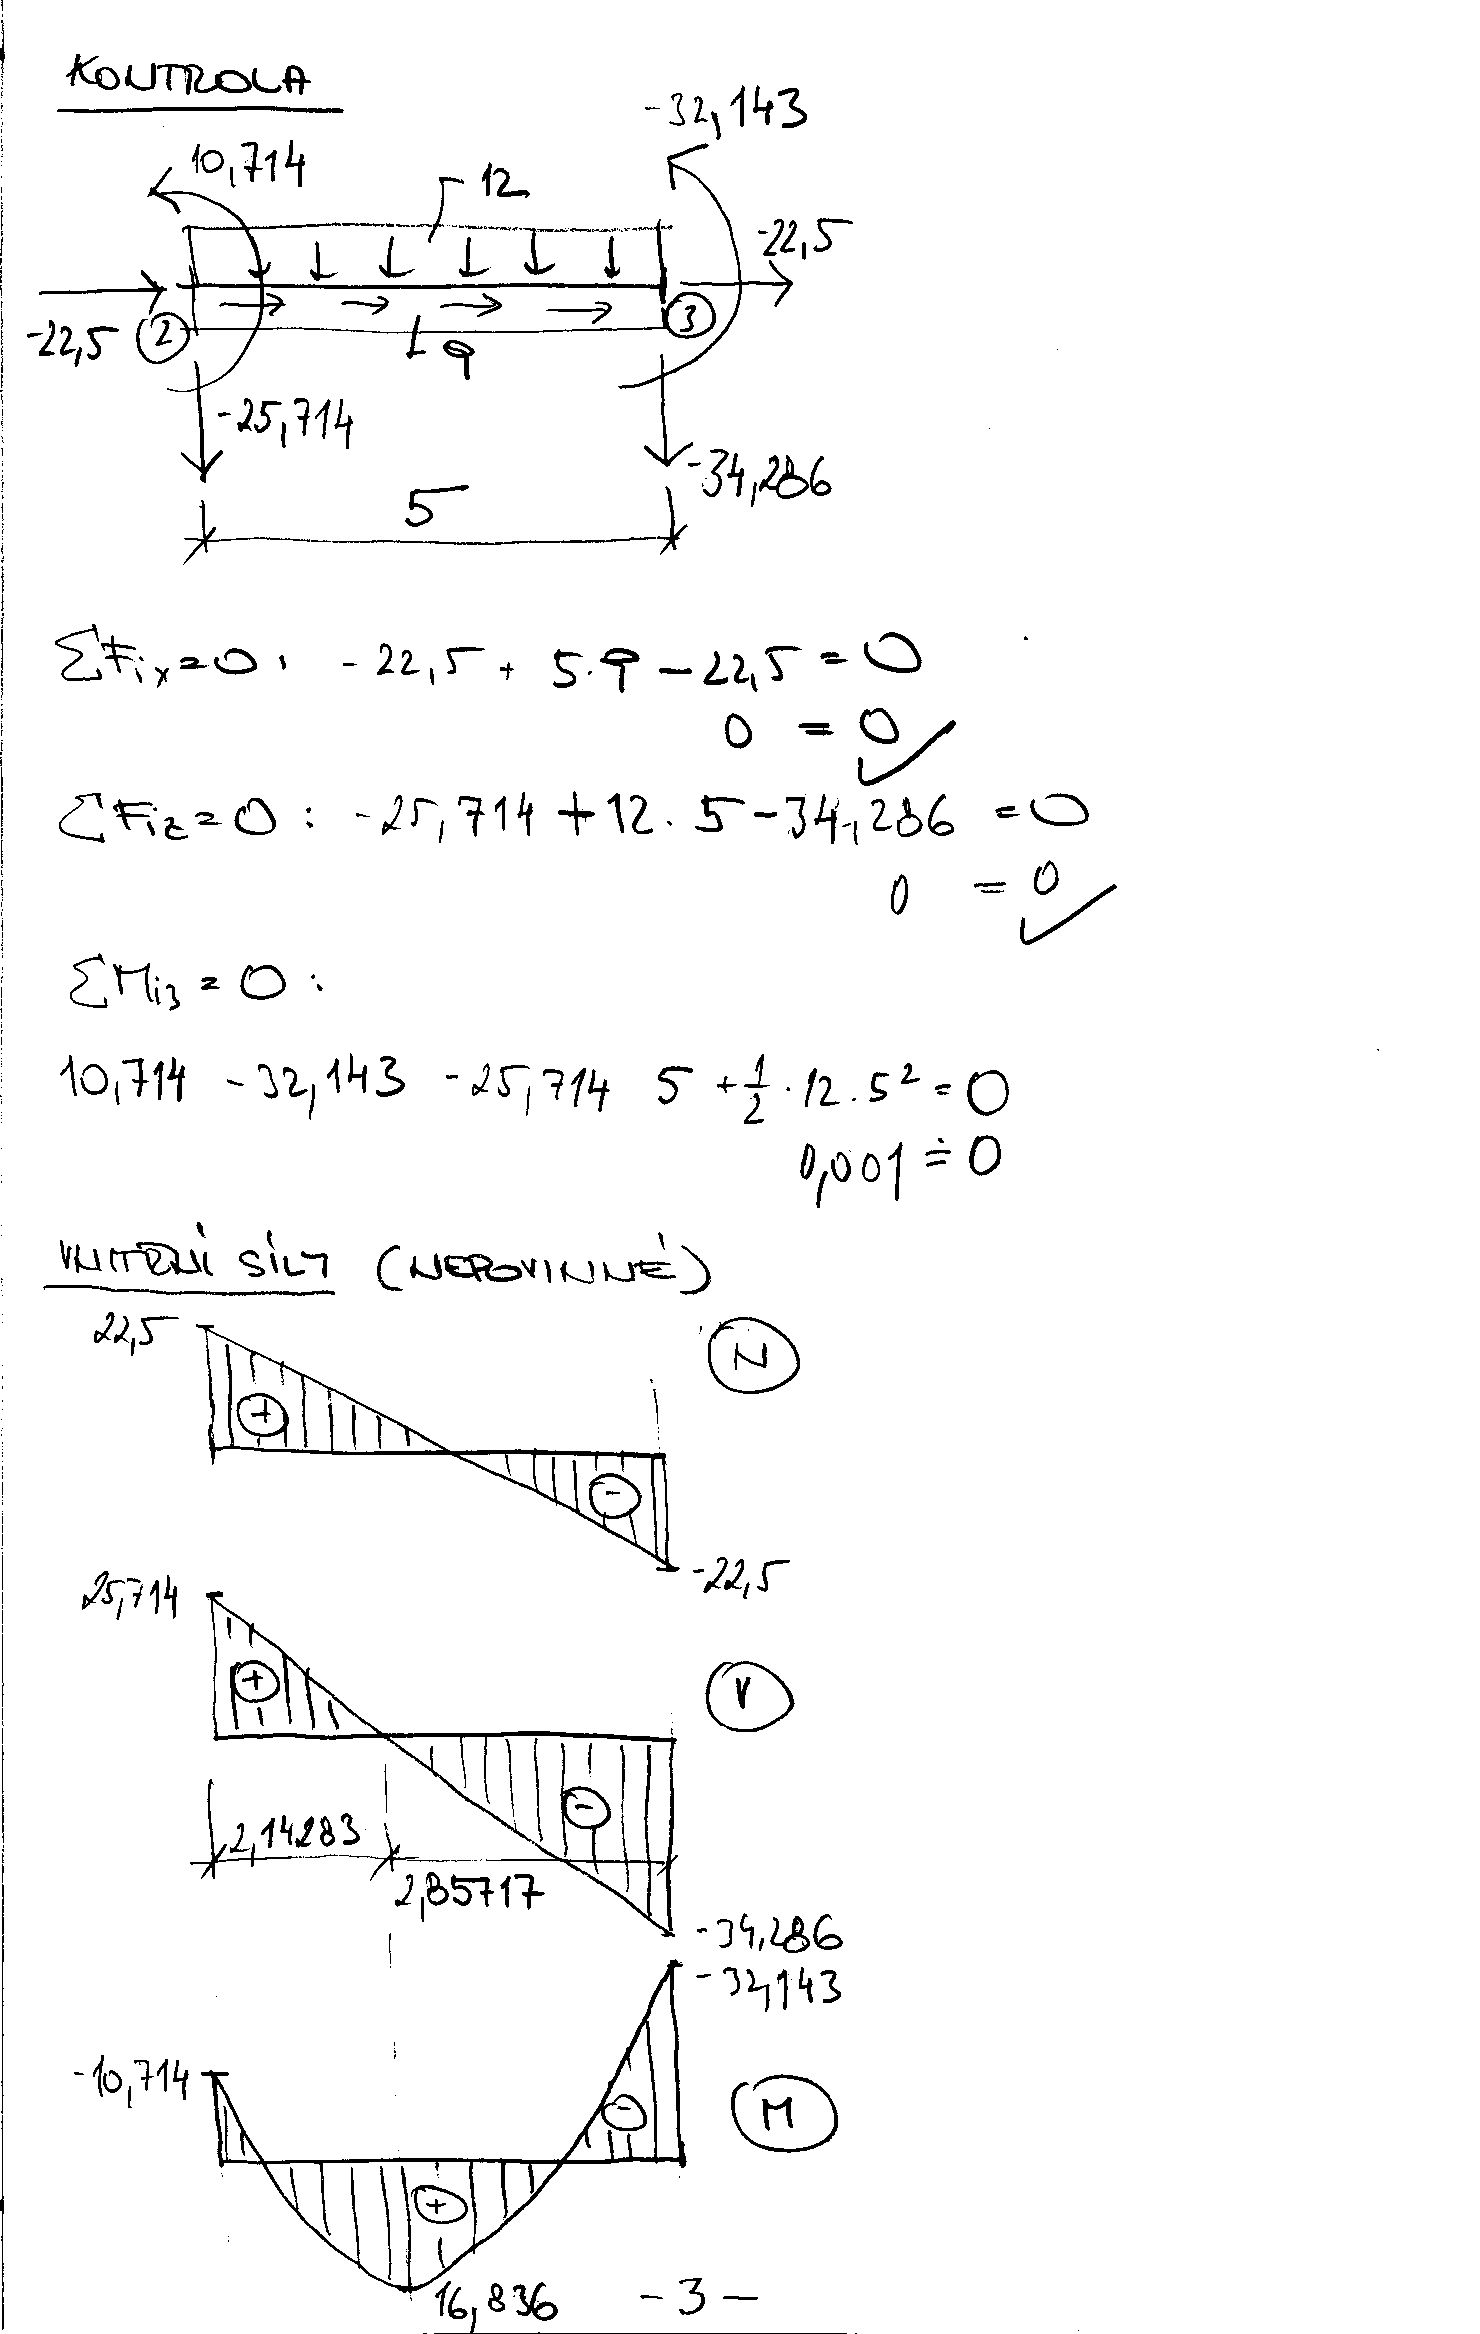 KONTROLA
-32,143
10,714
12
-22,5
-22,5 2 3
9
-25,714
-34,286
5
ΣFix=0: -22,5 + 5·9 - 22,5 = 0
0 = 0 ✓
ΣFiz=0: -25,714 + 12·5 - 34,286 = 0
0 = 0 ✓
ΣMi3=0:
10,714 -32,143 -25,714 5 + 1/2·12·5² = 0
0,001 ≐ 0
VNITŘNÍ SÍLY (NEPOVINNÉ)
22,5
N
+
-
-22,5
25,714
+
V
-
2,14283
2,85717
-34,286
-32,143
-10,714
M
-
+
16,836
-3-